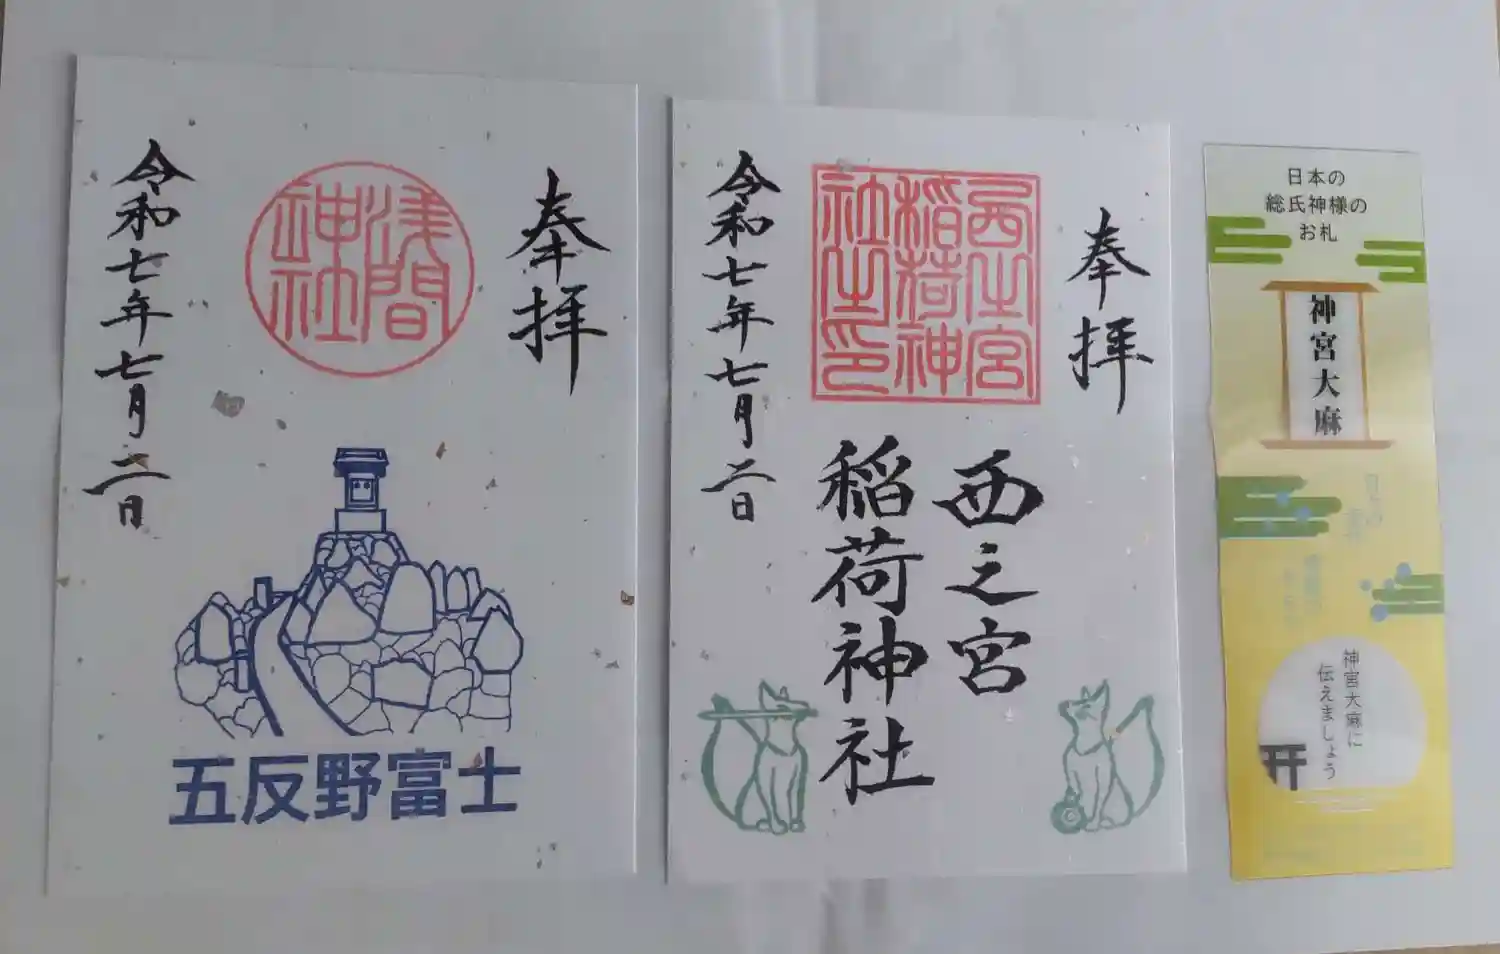 奉拝
浅間
神社
令和七年七月二日
五反野富士
奉拝
西之宮
稲荷神
社之印
西之宮
稲荷神社
令和七年七月二日
日本の
総氏神様の
お札
神宮大麻
神宮大麻に
伝えましょう